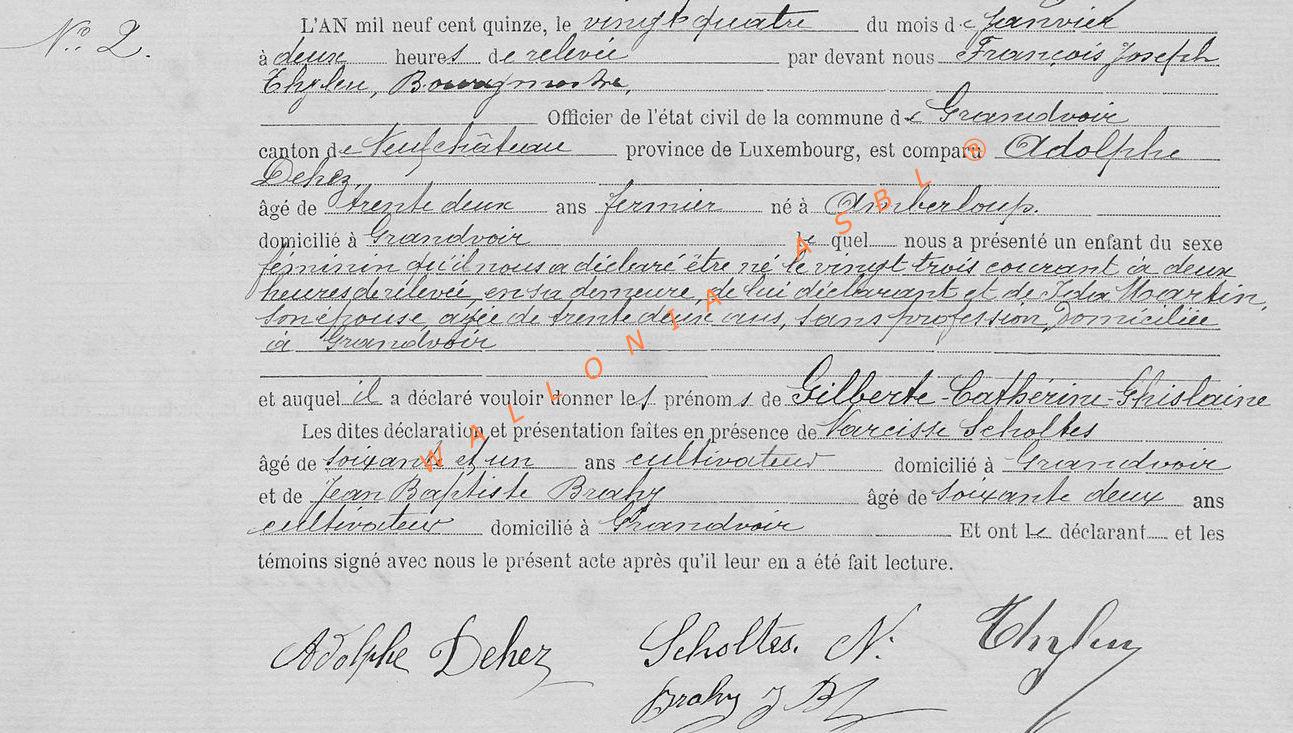 N° 2.
L'AN mil neuf cent quinze, le vingt quatre du mois de Janvier
à deux heures de relevée par devant nous François Joseph
Thyleu, Bourgmestre,
Officier de l'état civil de la commune de Grandvoir
canton de Neufchâteau province de Luxembourg, est comparu Adolphe
Dehez,
âgé de trente deux ans fermier né à Amberloup.
domicilié à Grandvoir le quel nous a présenté un enfant du sexe
féminin qu'il nous a déclaré être né le vingt trois courant à deux
heures de relevée, en sa demeure, de lui déclarant et de Ida Martin,
son épouse, agée de trente deux ans, sans profession, Domiciliée
à Grandvoir
et auquel il a déclaré vouloir donner les prénoms de Gilberte-Cathérine-Ghislaine
Les dites déclaration et présentation faîtes en présence de Narcisse Scholtes
âgé de soixante et un ans cultivateur domicilié à Grandvoir
et de Jean Baptiste Brahy âgé de soixante deux ans
cultivateur domicilié à Grandvoir Et ont le déclarant et les
témoins signé avec nous le présent acte après qu'il leur en a été fait lecture.
Adolphe Dehez Scholtes. N. Thyleu
Brahy J B
WALLONIA ASBL ®